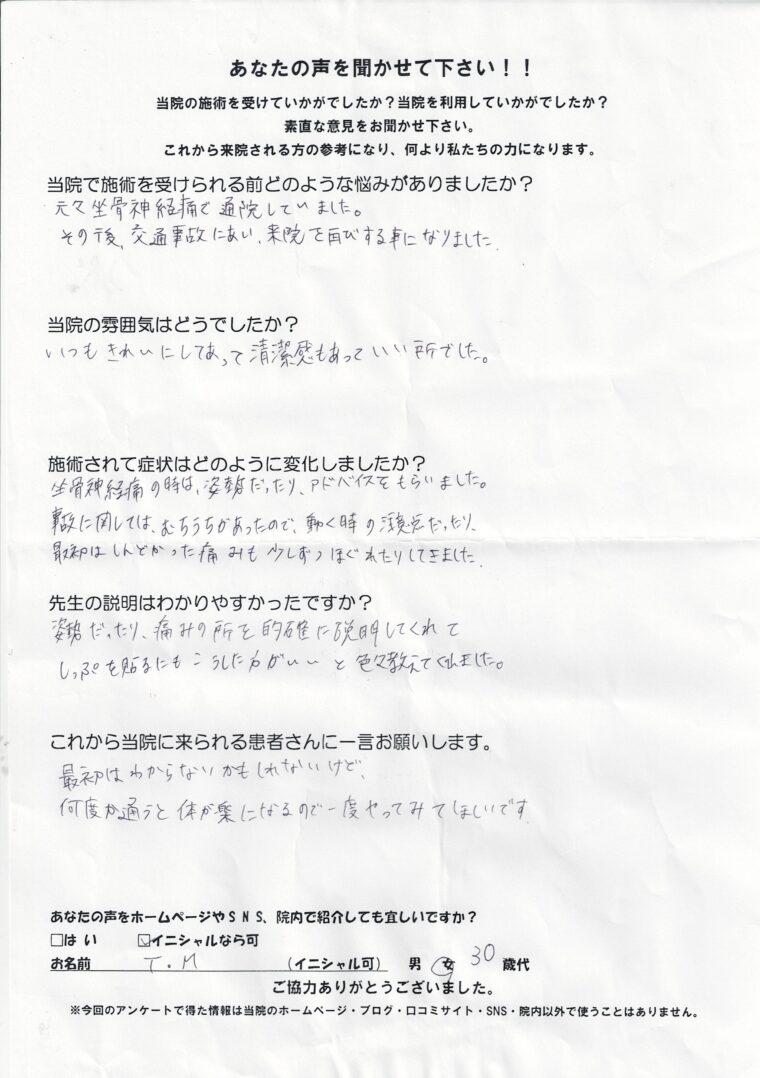 あなたの声を聞かせて下さい！！
当院の施術を受けていかがでしたか？当院を利用していかがでしたか？
素直な意見をお聞かせ下さい。
これから来院される方の参考になり、何より私たちの力になります。
当院で施術を受けられる前どのような悩みがありましたか？
元々坐骨神経痛で通院していました。
その後、交通事故にあい、来院を再びする事になりました。
当院の雰囲気はどうでしたか？
いつもきれいにしてあって清潔感もあっていい所でした。
施術されて症状はどのように変化しましたか？
坐骨神経痛の時は、姿勢だったり、アドバイスをもらいました。
事故に関しては、むちうちがあったので、動く時の注意点だったり、
最初はしんどかった痛みも少しずつほぐれたりしてきました。
先生の説明はわかりやすかったですか？
姿勢だったり、痛みの所を的確に説明してくれて
しっぷを貼るにもこうした方がいいと色々教えてくれました。
これから当院に来られる患者さんに一言お願いします。
最初はわからないかもしれないけど、
何度か通うと体が楽になるので一度やってみてほしいです
あなたの声をホームページやＳＮＳ、院内で紹介しても宜しいですか？
□はい ☑イニシャルなら可
お名前 T.M （イニシャル可） 男 女 30 歳代
ご協力ありがとうございました。
※今回のアンケートで得た情報は当院のホームページ・ブログ・口コミサイト・SNS・院内以外で使うことはありません。